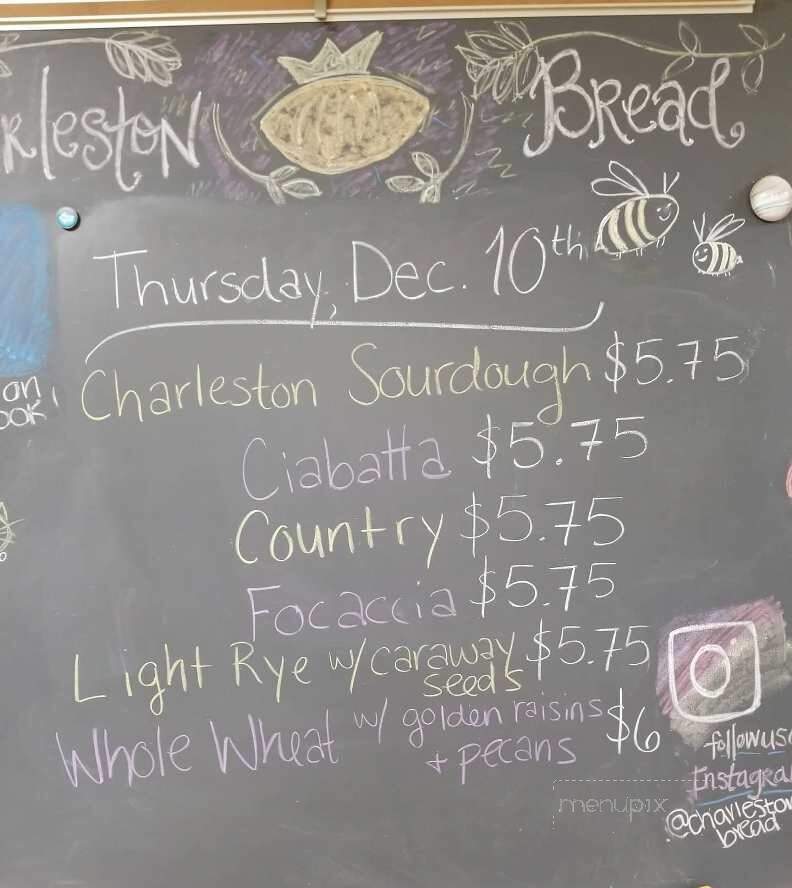 rleston Bread
Thursday, Dec. 10th
Charleston Sourdough $5.75
on
ook!
Ciabatta $5.75
Country $5.75
Focaccia $5.75
Light Rye w/caraway seeds $5.75
Whole Wheat w/ golden raisins + pecans $6
follow us o
Instagra
@charleston
bread
menupix